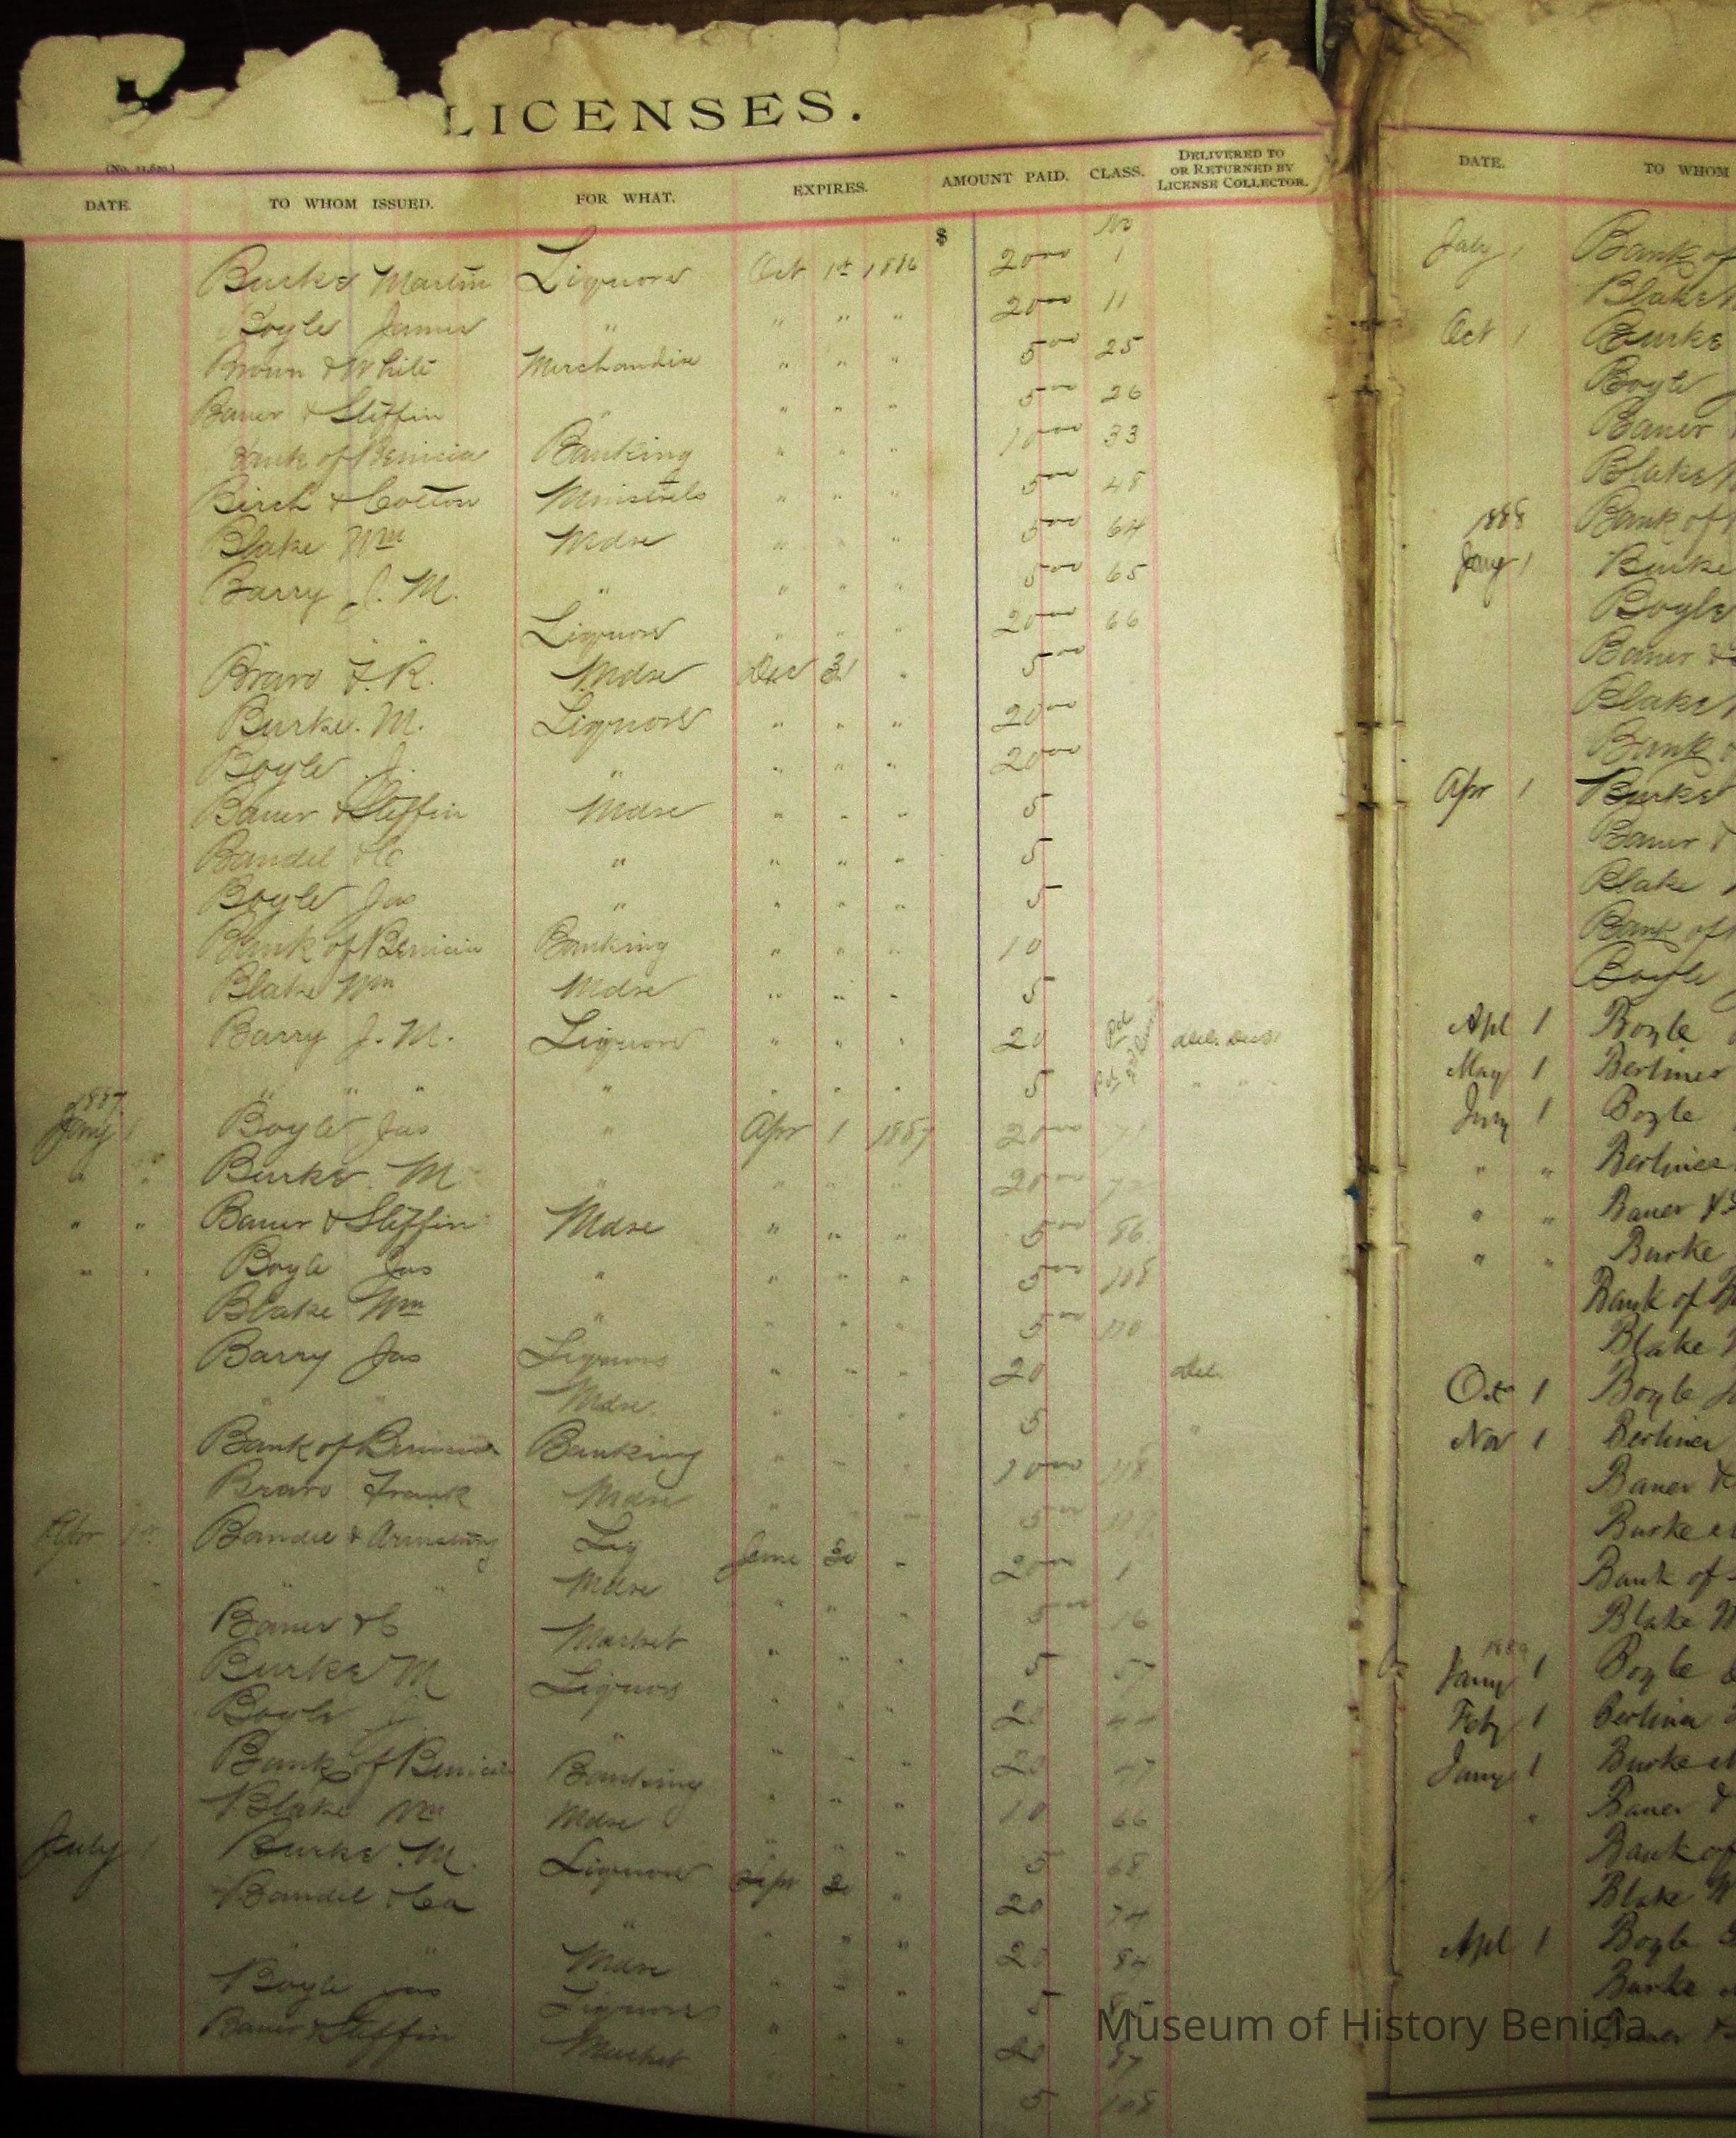 LICENSES.
DATE. TO WHOM ISSUED. FOR WHAT. EXPIRES. AMOUNT PAID. CLASS. DELIVERED TO OR RETURNED BY LICENSE COLLECTOR.
$ No
Burke Martin Liquors Oct 1st 1886 20 00 1
Boyle James " " " " 20 00 11
Brown & White Merchandise " " " 5 00 25
Bauer & Steffin " " " " 5 00 26
Bank of Benicia Banking " " " 10 00 33
Birch & Cotton Minstrels " " " 5 00 48
Blake Wm Mdse " " " 5 00 64
Barry J. M. " " " " 5 00 65
" " " Liquors " " " 20 00 66
Bravo F. R. Mdse Dec 31 " 5 00
Burke. M. Liquors " " " 20 00
Boyle J. " " " " 20 00
Bauer & Steffin Mdse " " " 5
Bandel & Co " " " " 5
Boyle Jas " " " " 5
Bank of Benicia Banking " " " 10
Blake Wm Mdse " " " 5
Barry J. M. Liquors " " " 20 Pd
" " " " " " " 5 Pd " "
1887
Jany 1 Boyle Jas " Apr 1 1887 20 00 71
" " Burke. M " " " " 20 00 72
" " Bauer & Steffin Mdse " " " 5 00 86
" " Boyle Jas " " " " 5 00 108
Blake Wm " " " " 5 00 110
Barry Jas Liquors " " " 20 Del.
" " Mdse. " " " 5 "
Bank of Benicia Banking " " " 10 00 118
Bravo Frank Mdse " " " 5 00 119
Apr 1st Bandel & Armstrong Liq June 30 " 20 00 1
" " " " Mdse " " " 5 00 16
Bauer & Co Market " " " 5 57
Burke M Liquors " " " 20 44
Boyle J " " " " 20 47
Bank of Benicia Banking " " " 10 66
Blake Wm Mdse " " " 5 68
July 1 Burke. M. Liquors Sept 30 " 20 74
Bandel & Co " " " " 20 84
" " Mdse " " " 5
Boyle Jas Liquors " " " 20 87
Bauer & Steffin Market " " " 5 108
DATE. TO WHOM
July 1 Bank of
Blake
Oct 1 Burke
Boyle
Bauer
Blake
1888 Bank of
Jany 1 Burke
Boyle
Bauer &
Blake
Bank
Apr 1 Burke
Bauer &
Blake
Bank of
Boyle
Apl 1 Boyle
May 1 Berliner
July 1 Boyle
" " Berliner
" " Bauer &
" " Burke
Bank of B
Blake
Oct 1 Boyle
Nov 1 Berliner
Bauer &
Burke
Bank of
Blake W
1889
Jany 1 Boyle
Feby 1 Berliner
Jany 1 Burke M
" Bauer &
Bank of
Blake W
Apl 1 Boyle
Burke
Bauer &
Museum of History Benicia